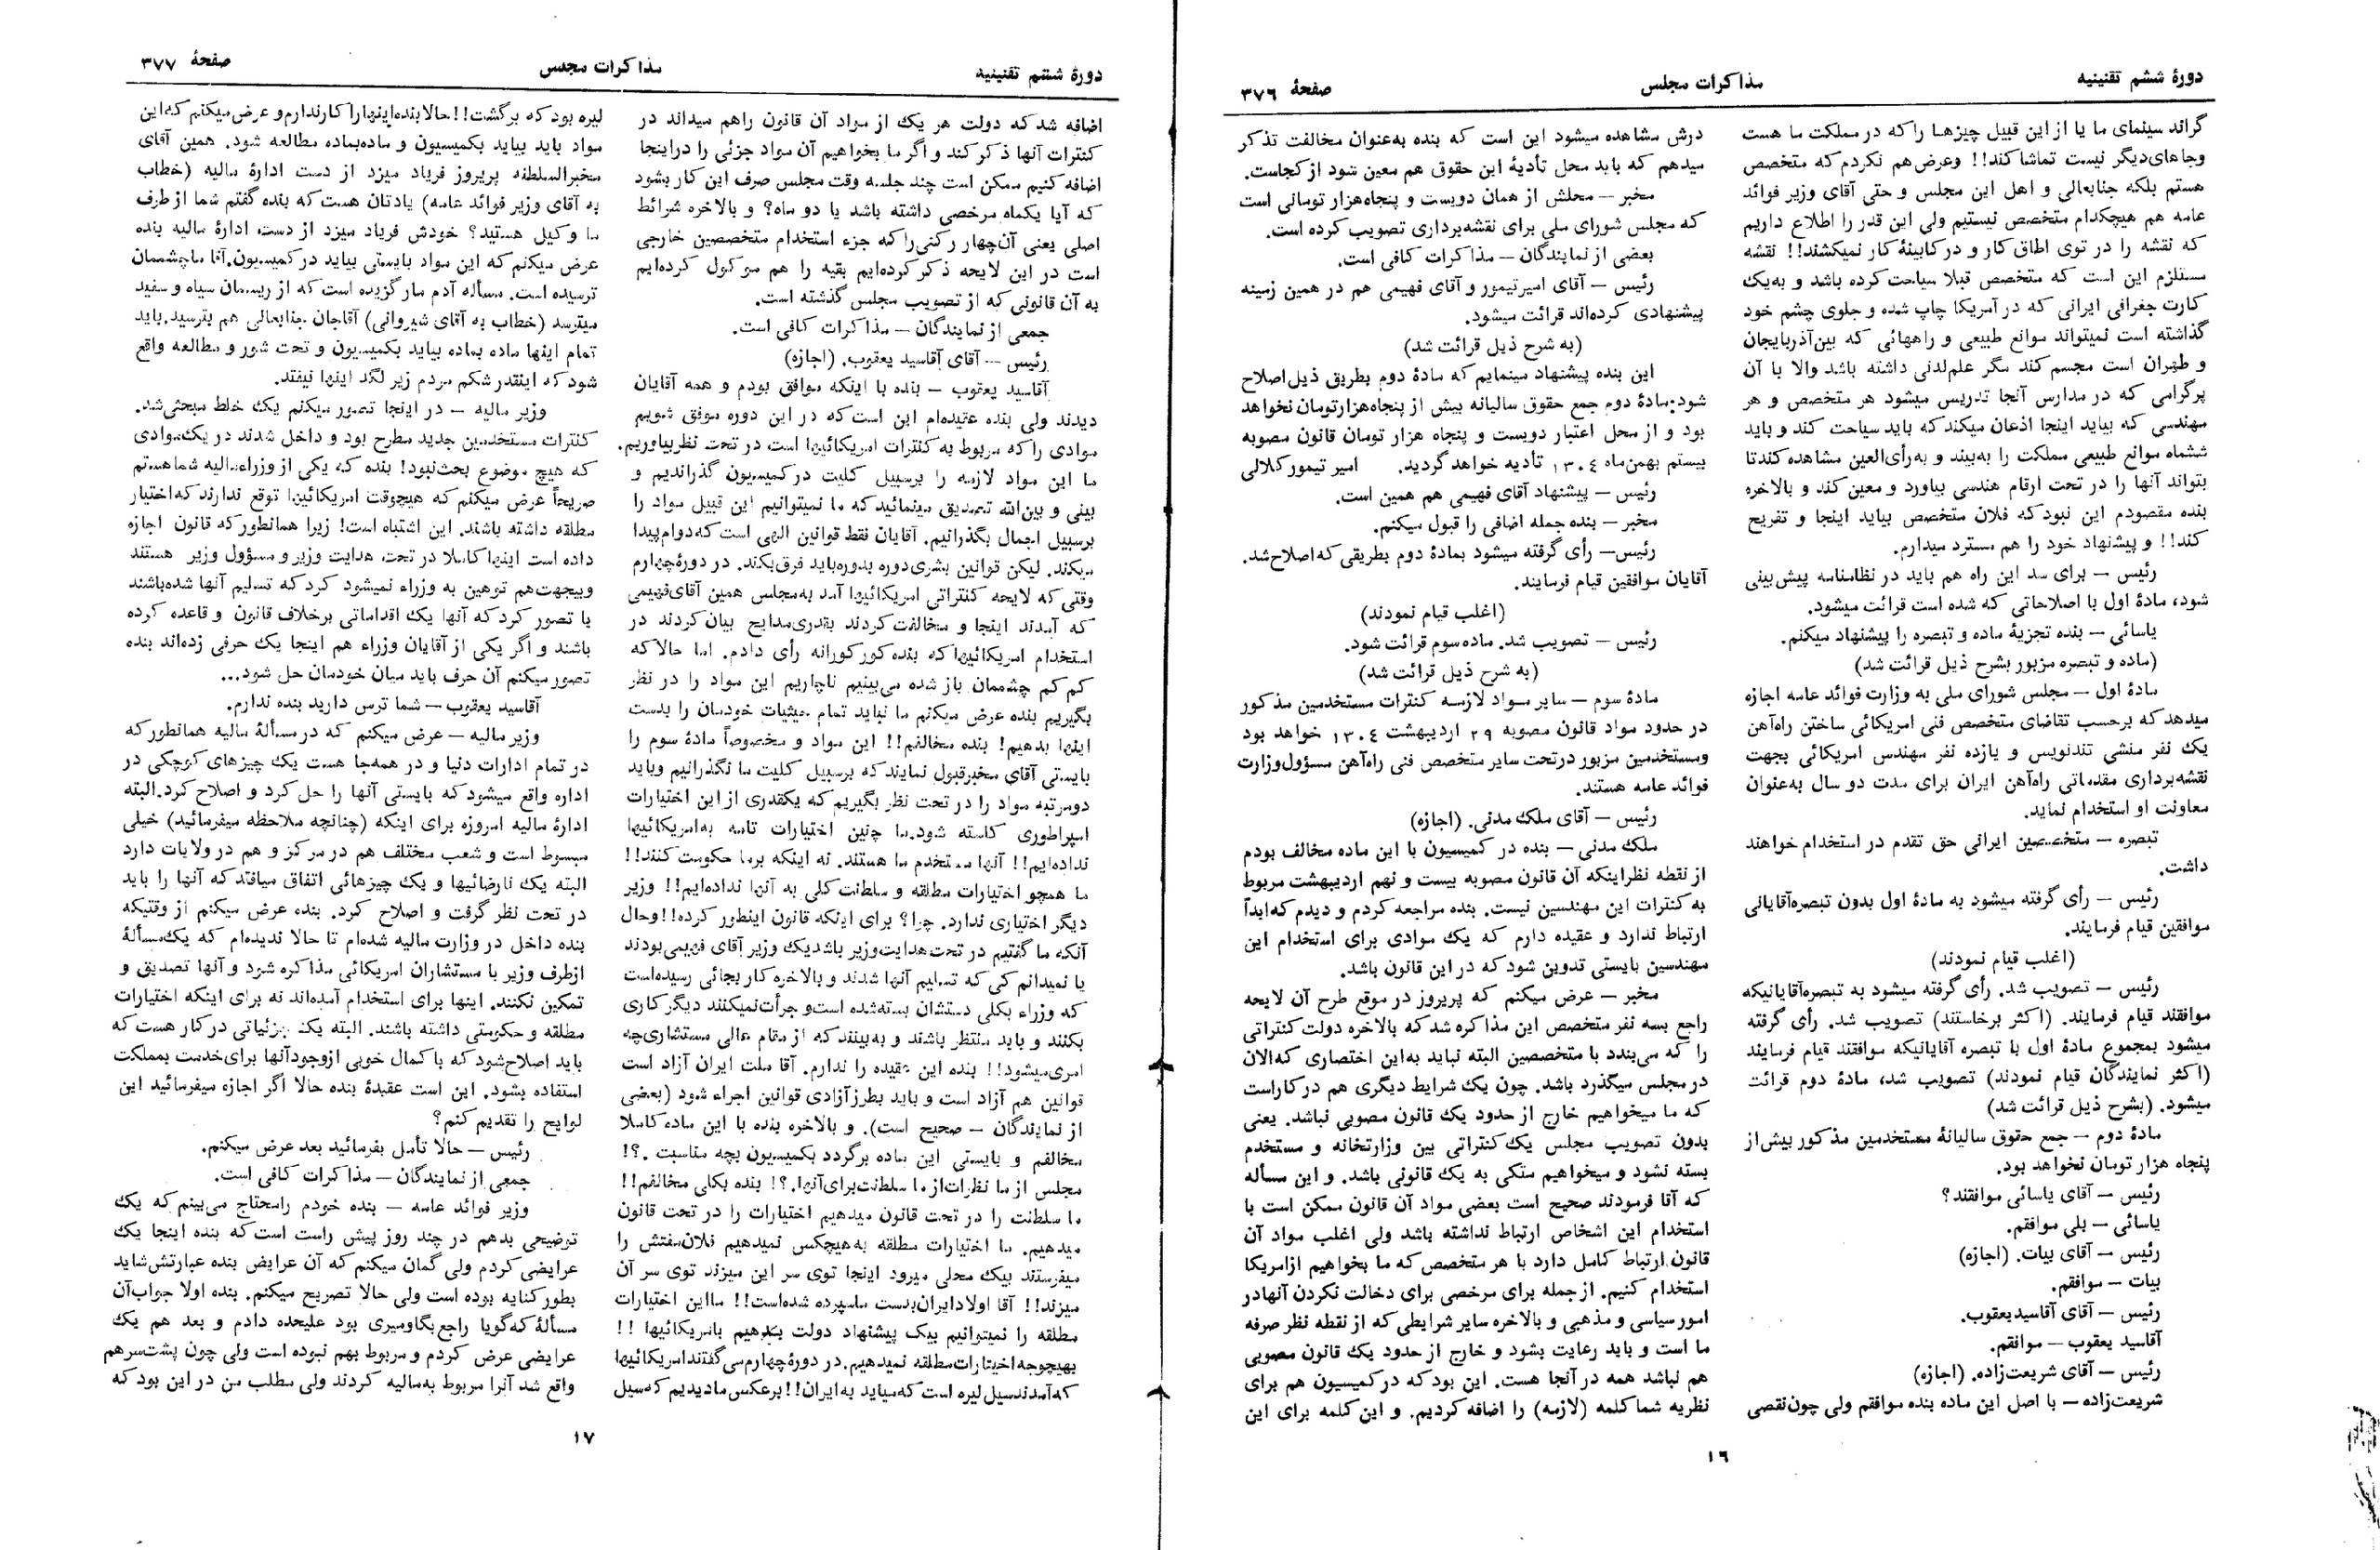 دورهٔ ششم تقنینیه
مذاکرات مجلس
صفحهٔ ۳۷۶
گراند سینمای ما یا از این قبیل چیزها را که در مملکت ما هست
وجاهای دیگر نیست تماشا کند!! وعرض هم نکردم که متخصص
هستم بلکه جنابعالی و اهل این مجلس و حتی آقای وزیر فوائد
عامه هم هیچکدام متخصص نیستیم ولی این قدر را اطلاع داریم
که نقشه را در توی اطاق کار و در کابینهٔ کار نمیکشند!! نقشه
مستلزم این است که متخصص قبلا سیاحت کرده باشد و به‌یک
کارت جغرافی ایرانی که در آمریکا چاپ شده و جلوی چشم خود
گذاشته است نمیتواند موانع طبیعی و راههائی که بین‌آذربایجان
و طهران است مجسم کند مگر علم‌لدنی داشته باشد والا با آن
پرگرامی که در مدارس آنجا تدریس میشود هر متخصص و هر
مهندسی که بیاید اینجا اذعان میکند که باید سیاحت کند و باید
ششماه موانع طبیعی مملکت را به‌بیند و به‌رأی‌العین مشاهده کند تا
بتواند آنها را در تحت ارقام هندسی بیاورد و معین کند و بالاخره
بنده مقصودم این نبود که فلان متخصص بیاید اینجا و تفریح
کند!! و پیشنهاد خود را هم مسترد میدارم.
رئیس – برای سد این راه هم باید در نظامنامه پیش‌بینی
شود، مادهٔ اول با اصلاحاتی که شده است قرائت میشود.
یاسائی – بنده تجزیهٔ ماده و تبصره را پیشنهاد میکنم.
(ماده و تبصره مزبور بشرح ذیل قرائت شد)
مادهٔ اول – مجلس شورای ملی به وزارت فوائد عامه اجازه
میدهد که برحسب تقاضای متخصص فنی امریکائی ساختن راه‌آهن
یک نفر منشی تندنویس و یازده نفر مهندس امریکائی بجهت
نقشه‌برداری مقدماتی راه‌آهن ایران برای مدت دو سال به‌عنوان
معاونت او استخدام نماید.
تبصره – متخصصین ایرانی حق تقدم در استخدام خواهند
داشت.
رئیس – رأی گرفته میشود به مادهٔ اول بدون تبصره‌آقایانی
موافقین قیام فرمایند.
(اغلب قیام نمودند)
رئیس – تصویب شد. رأی گرفته میشود به تبصره‌آقایانیکه
موافقند قیام فرمایند. (اکثر برخاستند) تصویب شد. رأی گرفته
میشود بمجموع مادهٔ اول با تبصره آقایانیکه موافقند قیام فرمایند
(اکثر نمایندگان قیام نمودند) تصویب شد، مادهٔ دوم قرائت
میشود. (بشرح ذیل قرائت شد)
مادهٔ دوم – جمع حقوق سالیانهٔ مستخدمین مذکور بیش‌از
پنجاه هزار تومان نخواهد بود.
رئیس – آقای یاسائی موافقند؟
یاسائی – بلی موافقم.
رئیس – آقای بیات. (اجازه)
بیات – موافقم.
رئیس – آقای آقاسیدیعقوب.
آقاسید یعقوب – موافقم.
رئیس – آقای شریعت‌زاده. (اجازه)
شریعت‌زاده – با اصل این ماده بنده موافقم ولی چون نقصی
درش مشاهده میشود این است که بنده به‌عنوان مخالفت تذکر
میدهم که باید محل تأدیهٔ این حقوق هم معین شود از کجاست.
مخبر – محلش از همان دویست و پنجاه‌هزار تومانی است
که مجلس شورای ملی برای نقشه‌برداری تصویب کرده است.
بعضی از نمایندگان – مذاکرات کافی است.
رئیس – آقای امیرتیمور و آقای فهیمی هم در همین زمینه
پیشنهادی کرده‌اند قرائت میشود.
(به شرح ذیل قرائت شد)
این بنده پیشنهاد مینمایم که مادهٔ دوم بطریق ذیل اصلاح
شود:مادهٔ دوم جمع حقوق سالیانه بیش از پنجاه‌هزارتومان نخواهد
بود و از محل اعتبار دویست و پنجاه هزار تومان قانون مصوبه
بیستم بهمن‌ماه ۱۳۰۴ تأدیه خواهد گردید. امیر تیمور کلالی
رئیس – پیشنهاد آقای فهیمی هم همین است.
مخبر – بنده جمله اضافی را قبول میکنم.
رئیس– رأی گرفته میشود بمادهٔ دوم بطریقی که اصلاح‌شد.
آقایان موافقین قیام فرمایند.
(اغلب قیام نمودند)
رئیس – تصویب شد. ماده سوم قرائت شود.
(به شرح ذیل قرائت شد)
مادهٔ سوم – سایر مواد لازمه کنترات مستخدمین مذکور
در حدود مواد قانون مصوبه ۲۹ اردیبهشت ۱۳۰۴ خواهد بود
ومستخدمین مزبور درتحت سایر متخصص فنی راه‌آهن مسؤول وزارت
فوائد عامه هستند.
رئیس – آقای ملک مدنی. (اجازه)
ملک مدنی – بنده در کمیسیون با این ماده مخالف بودم
از نقطه نظر اینکه آن قانون مصوبه بیست و نهم اردیبهشت مربوط
به کنترات این مهندسین نیست. بنده مراجعه کردم و دیدم که ابداً
ارتباط ندارد و عقیده دارم که یک موادی برای استخدام این
مهندسین بایستی تدوین شود که در این قانون باشد.
مخبر – عرض میکنم که پریروز در موقع طرح آن لایحه
راجع بسه نفر متخصص این مذاکره شد که بالاخره دولت کنتراتی
را که می‌بندد با متخصصین البته نباید به‌این اختصاری که‌الان
در مجلس میگذرد باشد. چون یک شرایط دیگری هم در کاراست
که ما میخواهیم خارج از حدود یک قانون مصوبی نباشد. یعنی
بدون تصویب مجلس یک کنتراتی بین وزارتخانه و مستخدم
بسته نشود و میخواهیم متکی به یک قانونی باشد. و این مسأله
که آقا فرمودند صحیح است بعضی مواد آن قانون ممکن است با
استخدام این اشخاص ارتباط نداشته باشد ولی اغلب مواد آن
قانون ارتباط کامل دارد با هر متخصص که ما بخواهیم ازامریکا
استخدام کنیم. از جمله برای مرخصی برای دخالت نکردن آنهادر
امور سیاسی و مذهبی و بالاخره سایر شرایطی که از نقطه نظر صرفه
ما است و باید رعایت بشود و خارج از حدود یک قانون مصوبی
هم نباشد همه در آنجا هست. این بود که در کمیسیون هم برای
نظریه شما کلمه (لازمه) را اضافه کردیم. و این کلمه برای این
۱۶
دورهٔ ششم تقنینیه
مذاکرات مجلس
صفحهٔ ۳۷۷
اضافه شد که دولت هر یک از مواد آن قانون را هم میداند در
کنترات آنها ذکر کند و اگر ما بخواهیم آن مواد جزئی را در اینجا
اضافه کنیم ممکن است چند جلسه وقت مجلس صرف این کار بشود
که آیا یکماه مرخصی داشته باشد یا دو ماه؟ و بالاخره شرائط
اصلی یعنی آن‌چهار رکنی را که جزء استخدام متخصصین خارجی
است در این لایحه ذکر کرده‌ایم بقیه را هم موکول کرده‌ایم
به آن قانونی که از تصویب مجلس گذشته است.
جمعی از نمایندگان – مذاکرات کافی است.
رئیس – آقای آقاسید یعقوب. (اجازه)
آقاسید یعقوب – بنده با اینکه موافق بودم و همه آقایان
دیدند ولی بنده عقیده‌ام این است که در این دوره موفق شویم
موادی را که مربوط به کنترات امریکائیها است در تحت نظر بیاوریم.
ما این مواد لازمه را برسبیل کلیت در کمیسیون گذراندیم و
بینی و بین‌الله تصدیق مینمائید که ما نمیتوانیم این قبیل مواد را
برسبیل اجمال بگذرانیم. آقایان فقط قوانین الهی است که دوام پیدا
میکند. لیکن قوانین بشری دوره بدوره باید فرق بکند. در دورهٔ چهارم
وقتی که لایحه کنتراتی امریکائیها آمد به مجلس همین آقای فهیمی
که آمدند اینجا و مخالفت کردند بقدری مدایح بیان کردند در
استخدام امریکائیها که بنده کورکورانه رأی دادم. اما حالا که
کم کم چشممان باز شده می‌بینیم ناچاریم این مواد را در نظر
بگیریم بنده عرض میکنم ما نباید تمام حیثیات خودمان را بدست
اینها بدهیم! بنده مخالفم!! این مواد و مخصوصاً مادهٔ سوم را
بایستی آقای مخبر قبول نمایند که برسبیل کلیت ما نگذرانیم وباید
دومرتبه مواد را در تحت نظر بگیریم که یکقدری از این اختیارات
امپراطوری کاسته شود.ما چنین اختیارات تامه به‌امریکائیها
نداده‌ایم!! آنها مستخدم ما هستند. نه اینکه برما حکومت کنند!!
ما همچو اختیارات مطلقه و سلطنت کلی به آنها نداده‌ایم!! وزیر
دیگر اختیاری ندارد. چرا؟ برای اینکه قانون اینطور کرده!! وحال
آنکه ما گفتیم در تحت هدایت وزیر باشد یک وزیر آقای فهیمی بودند
یا نمیدانم کی که تسلیم آنها شدند و بالاخره کار بجائی رسیده‌است
که وزراء بکلی دستشان بسته شده است و جرأت نمیکنند دیگر کاری
بکنند و باید منتظر باشند و به‌بینند که از مقام عالی مستشاری چه
امری میشود!! بنده این عقیده را ندارم. آقا ملت ایران آزاد است
قوانین هم آزاد است و باید بطرز آزادی قوانین اجراء شود (بعضی
از نمایندگان – صحیح است). و بالاخره بنده با این ماده کاملا
مخالفم و بایستی این ماده برگردد بکمیسیون بچه مناسبت .؟!
مجلس از ما نظرات از ما سلطنت برای آنها.؟! بنده بکلی مخالفم!!
ما سلطنت را در تحت قانون میدهیم اختیارات را در تحت قانون
میدهیم. ما اختیارات مطلقه به‌هیچکس نمیدهیم فلان مفتش را
میفرستند بیک محلی میرود اینجا توی سر این میزند توی سر آن
میزند!! آقا اولاد ایران بدست ما سپرده شده‌است!! ما این اختیارات
مطلقه را نمیتوانیم بیک پیشنهاد دولت بدهیم بامریکائیها !!
بهیچوجه اختیارات مطلقه نمیدهیم. در دورهٔ چهارم می گفتند امریکائیها
که آمدند سیل لیره است که میاید به ایران!! برعکس ما دیدیم که سیل
لیره بود که برگشت!! حالا بنده اینها را کار ندارم و عرض میکنم که این
مواد باید بیاید بکمیسیون و ماده‌بماده مطالعه شود. همین آقای
مخبرالسلطنه پریروز فریاد میزد از دست ادارهٔ مالیه (خطاب
به آقای وزیر فوائد عامه) یادتان هست که بنده گفتم شما از طرف
ما وکیل هستید؟ خودش فریاد میزد از دست ادارهٔ مالیه بنده
عرض میکنم که این مواد بایستی بیاید در کمیسیون. آقا ما چشممان
ترسیده است. مسأله آدم مار گزیده است که از ریسمان سیاه و سفید
میترسد (خطاب به آقای شیروانی) آقاجان جنابعالی هم بترسید. باید
تمام اینها ماده بماده بیاید بکمیسیون و تحت شور و مطالعه واقع
شود که اینقدر شکم مردم زیر لگد اینها نیفتد.
وزیر مالیه – در اینجا تصور میکنم یک خلط مبحثی شد.
کنترات مستخدمین جدید مطرح بود و داخل شدند در یک موادی
که هیچ موضوع بحث نبود! بنده که یکی از وزراء مالیه شما هستم
صریحاً عرض میکنم که هیچوقت امریکائیها توقع ندارند که اختیار
مطلقه داشته باشند. این اشتباه است! زیرا همانطور که قانون اجازه
داده است اینها کاملا در تحت هدایت وزیر و مسؤول وزیر هستند
وبیجهت هم توهین به وزراء نمیشود کرد که تسلیم آنها شده‌باشند
یا تصور کرد که آنها یک اقداماتی برخلاف قانون و قاعده کرده
باشند و اگر یکی از آقایان وزراء هم اینجا یک حرفی زده‌اند بنده
تصور میکنم آن حرف باید میان خودمان حل شود...
آقاسید یعقوب – شما ترس دارید بنده ندارم.
وزیر مالیه – عرض میکنم که در مسألهٔ مالیه همانطور که
در تمام ادارات دنیا و در همه‌جا هست یک چیزهای کوچکی در
اداره واقع میشود که بایستی آنها را حل کرد و اصلاح کرد.البته
ادارهٔ مالیه امروزه برای اینکه (چنانچه ملاحظه میفرمائید) خیلی
مبسوط است و شعب مختلف هم در مرکز و هم در ولایات دارد
البته یک نارضائیها و یک چیزهائی اتفاق میافتد که آنها را باید
در تحت نظر گرفت و اصلاح کرد. بنده عرض میکنم از وقتیکه
بنده داخل در وزارت مالیه شده‌ام تا حالا ندیده‌ام که یک مسألهٔ
ازطرف وزیر با مستشاران امریکائی مذاکره شود و آنها تصدیق و
تمکین نکنند. اینها برای استخدام آمده‌اند نه برای اینکه اختیارات
مطلقه و حکومتی داشته باشند. البته یک جزئیاتی در کار هست که
باید اصلاح شود که با کمال خوبی از وجود آنها برای خدمت بمملکت
استفاده بشود. این است عقیدهٔ بنده حالا اگر اجازه میفرمائید این
لوایح را تقدیم کنم؟
رئیس – حالا تأمل بفرمائید بعد عرض میکنم.
جمعی از نمایندگان – مذاکرات کافی است.
وزیر فوائد عامه – بنده خودم را محتاج می‌بینم که یک
توضیحی بدهم در چند روز پیش راست است که بنده اینجا یک
عرایضی کردم ولی گمان میکنم که آن عرایض بنده عبارتش شاید
بطور کنایه بوده است ولی حالا تصریح میکنم. بنده اولا جواب آن
مسألهٔ که گویا راجع بگاومیری بود علیحده دادم و بعد هم یک
عرایضی عرض کردم و مربوط بهم نبوده است ولی چون پشت سرهم
واقع شد آنرا مربوط به‌مالیه کردند ولی مطلب من در این بود که
۱۷